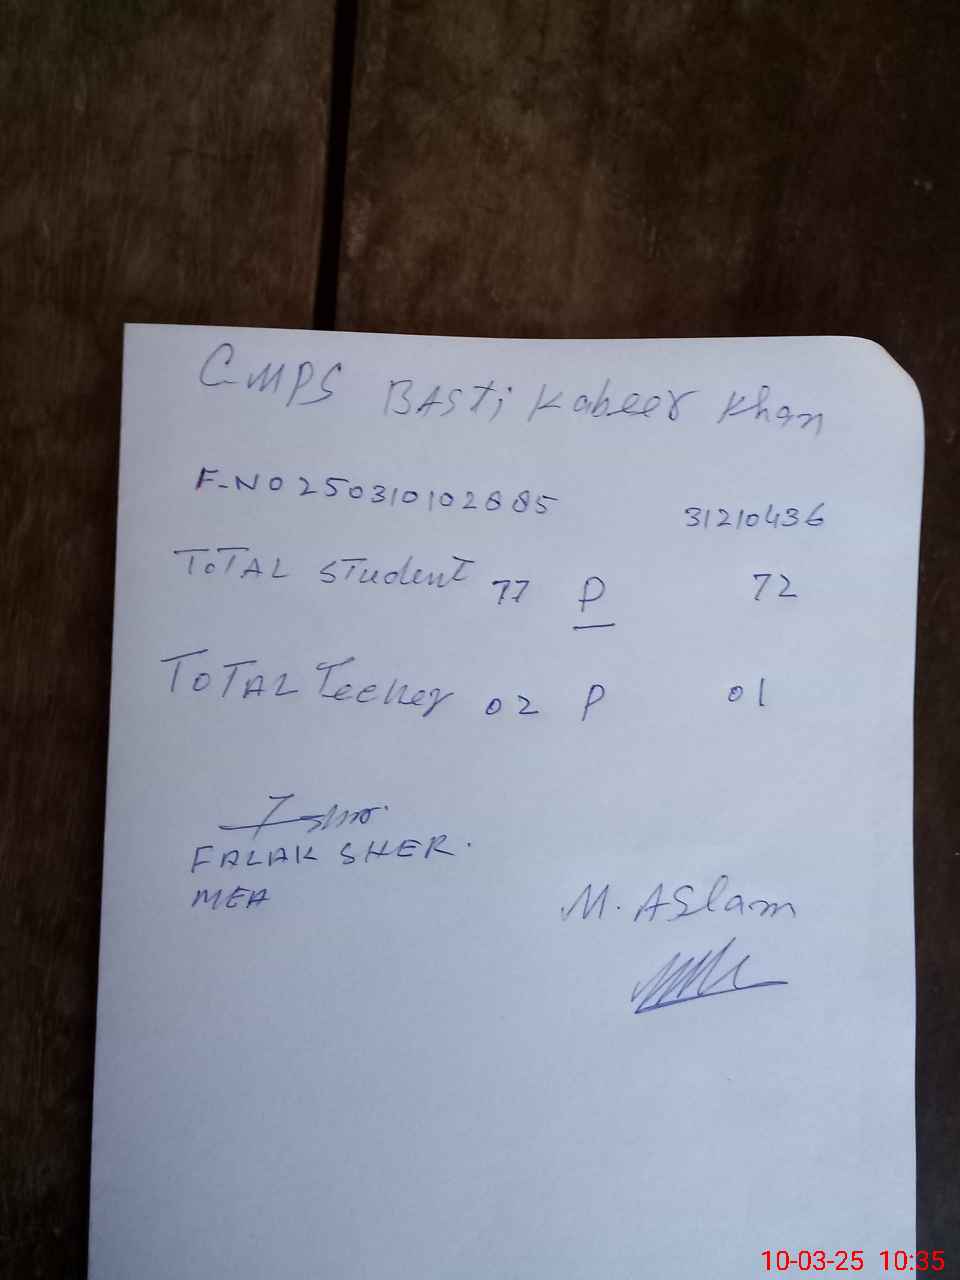 GMPS BASti Kabeer Khan
F-NO 250310102885 31210436
ToTAL STudent 77 P 72
ToTAL Teeher 02 P 01
FALAK SHER.
MEA
M. ASlam
10-03-25 10:35